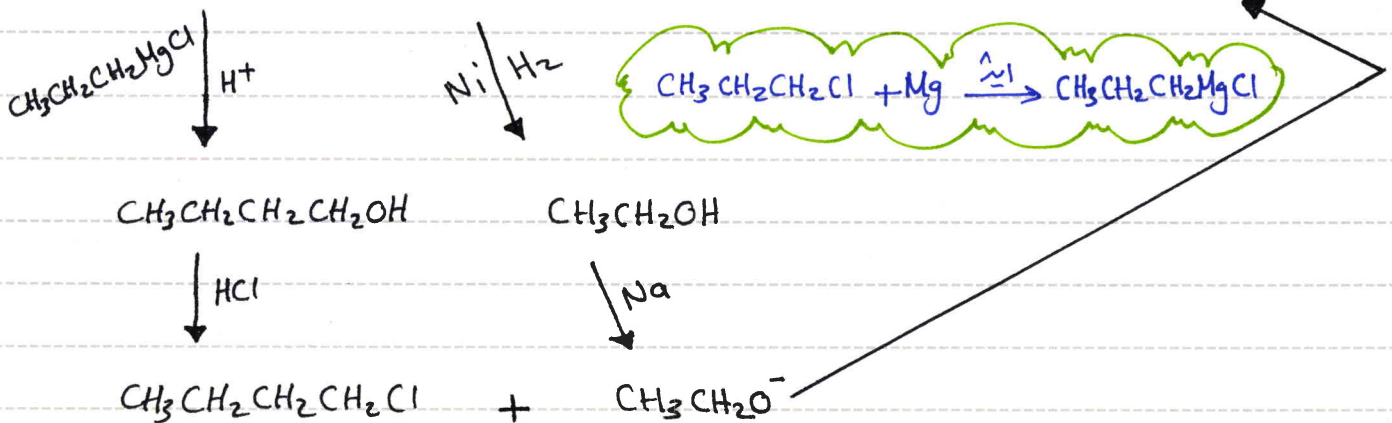 CH₃CH₂CH₂MgCl H⁺ Ni/H₂
CH₃CH₂CH₂Cl + Mg → CH₃CH₂CH₂MgCl
CH₃CH₂CH₂CH₂OH CH₃CH₂OH
HCl Na
CH₃CH₂CH₂CH₂Cl + CH₃CH₂O⁻